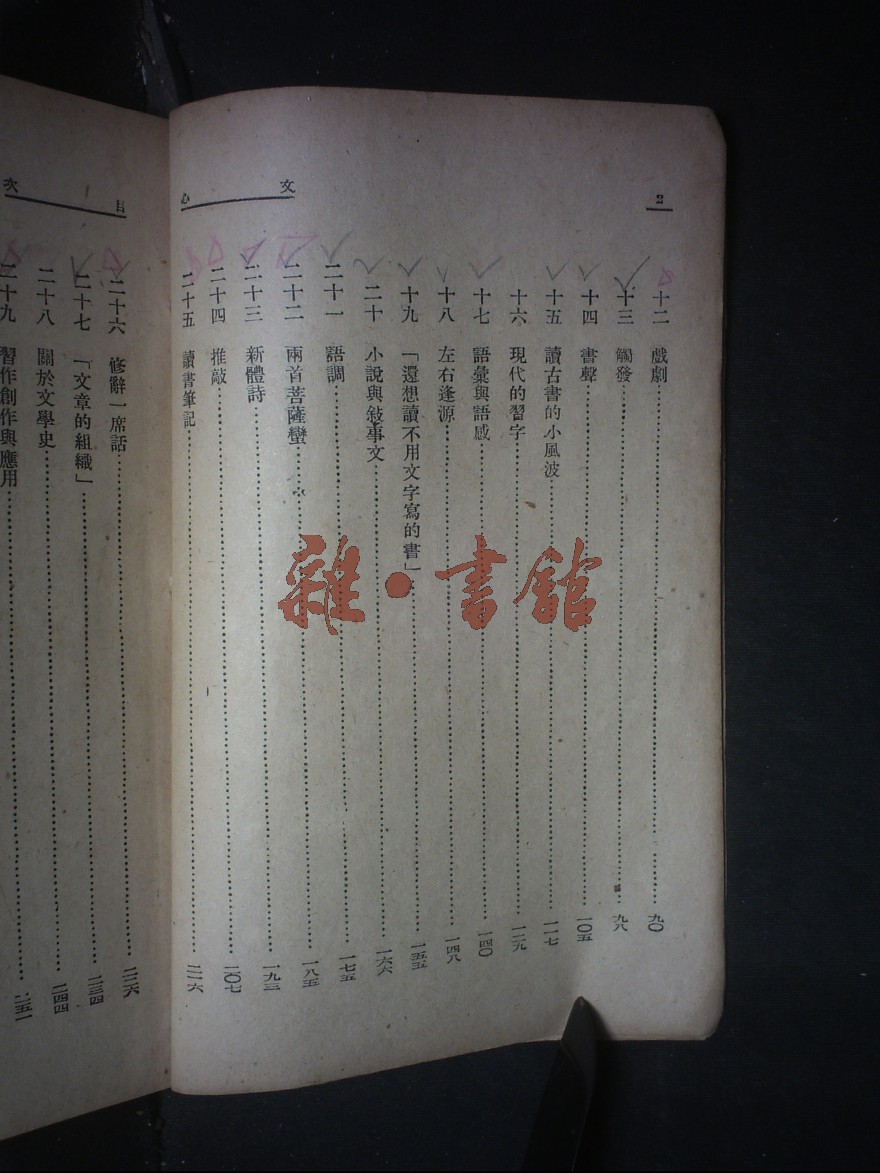 2
文心
十二 戲劇 九〇
十三 觸發 九八
十四 書聲 一〇五
十五 讀古書的小風波 一一七
十六 現代的習字 一二九
十七 語彙與語感 一四〇
十八 左右逢源 一四八
十九 「還想讀不用文字寫的書」 一五五
二十 小說與敍事文 一六六
二十一 語調 一七五
二十二 兩首菩薩蠻 一八五
二十三 新體詩 一九三
二十四 推敲 二〇七
二十五 讀書筆記 二一六
目次
二十六 修辭一席話 二二六
二十七 「文章的組織」 二三四
二十八 關於文學史 二四四
二十九 習作創作與應用 二五一
雜·書館